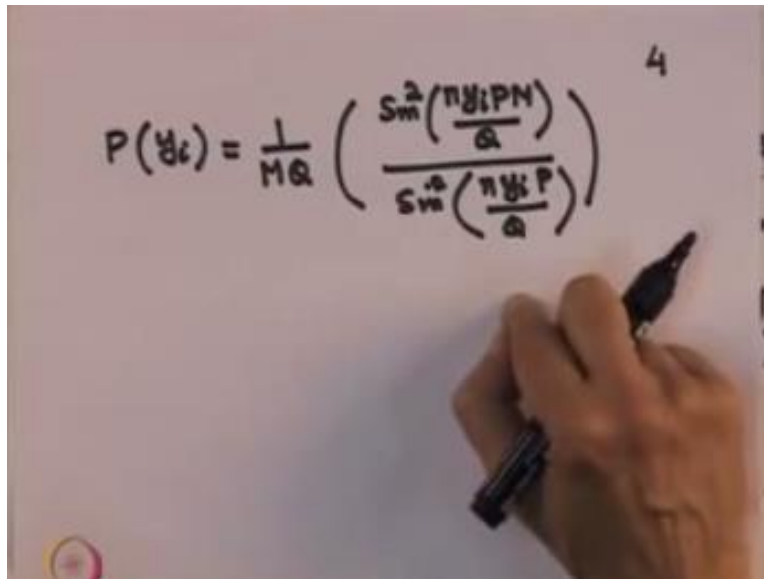 4
P(yᵢ) = 1/MQ ( Sin²(πyᵢPM/Q) / Sin²(πyᵢP/Q) )